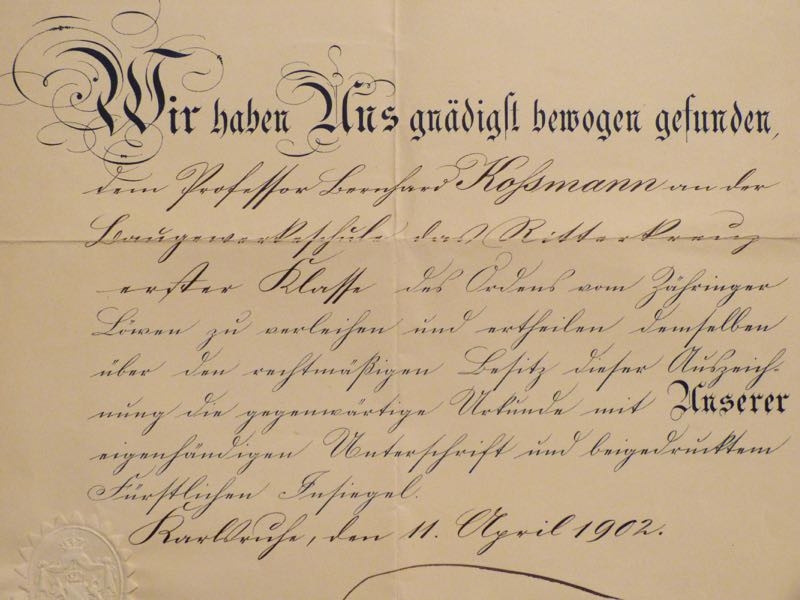 Wir haben Uns gnädigst bewogen gefunden,
dem Professor Bernhard Koßmann an der
Baugewerkeschule das Ritterkreuz
erster Klasse des Ordens vom Zähringer
Löwen zu verleihen und ertheilen demselben
über den rechtmäßigen Besitz dieser Auszeich-
nung die gegenwärtige Urkunde mit Unserer
eigenhändigen Unterschrift und beigedrucktem
Fürstlichen Insiegel.
Karlsruhe, den 11. April 1902.